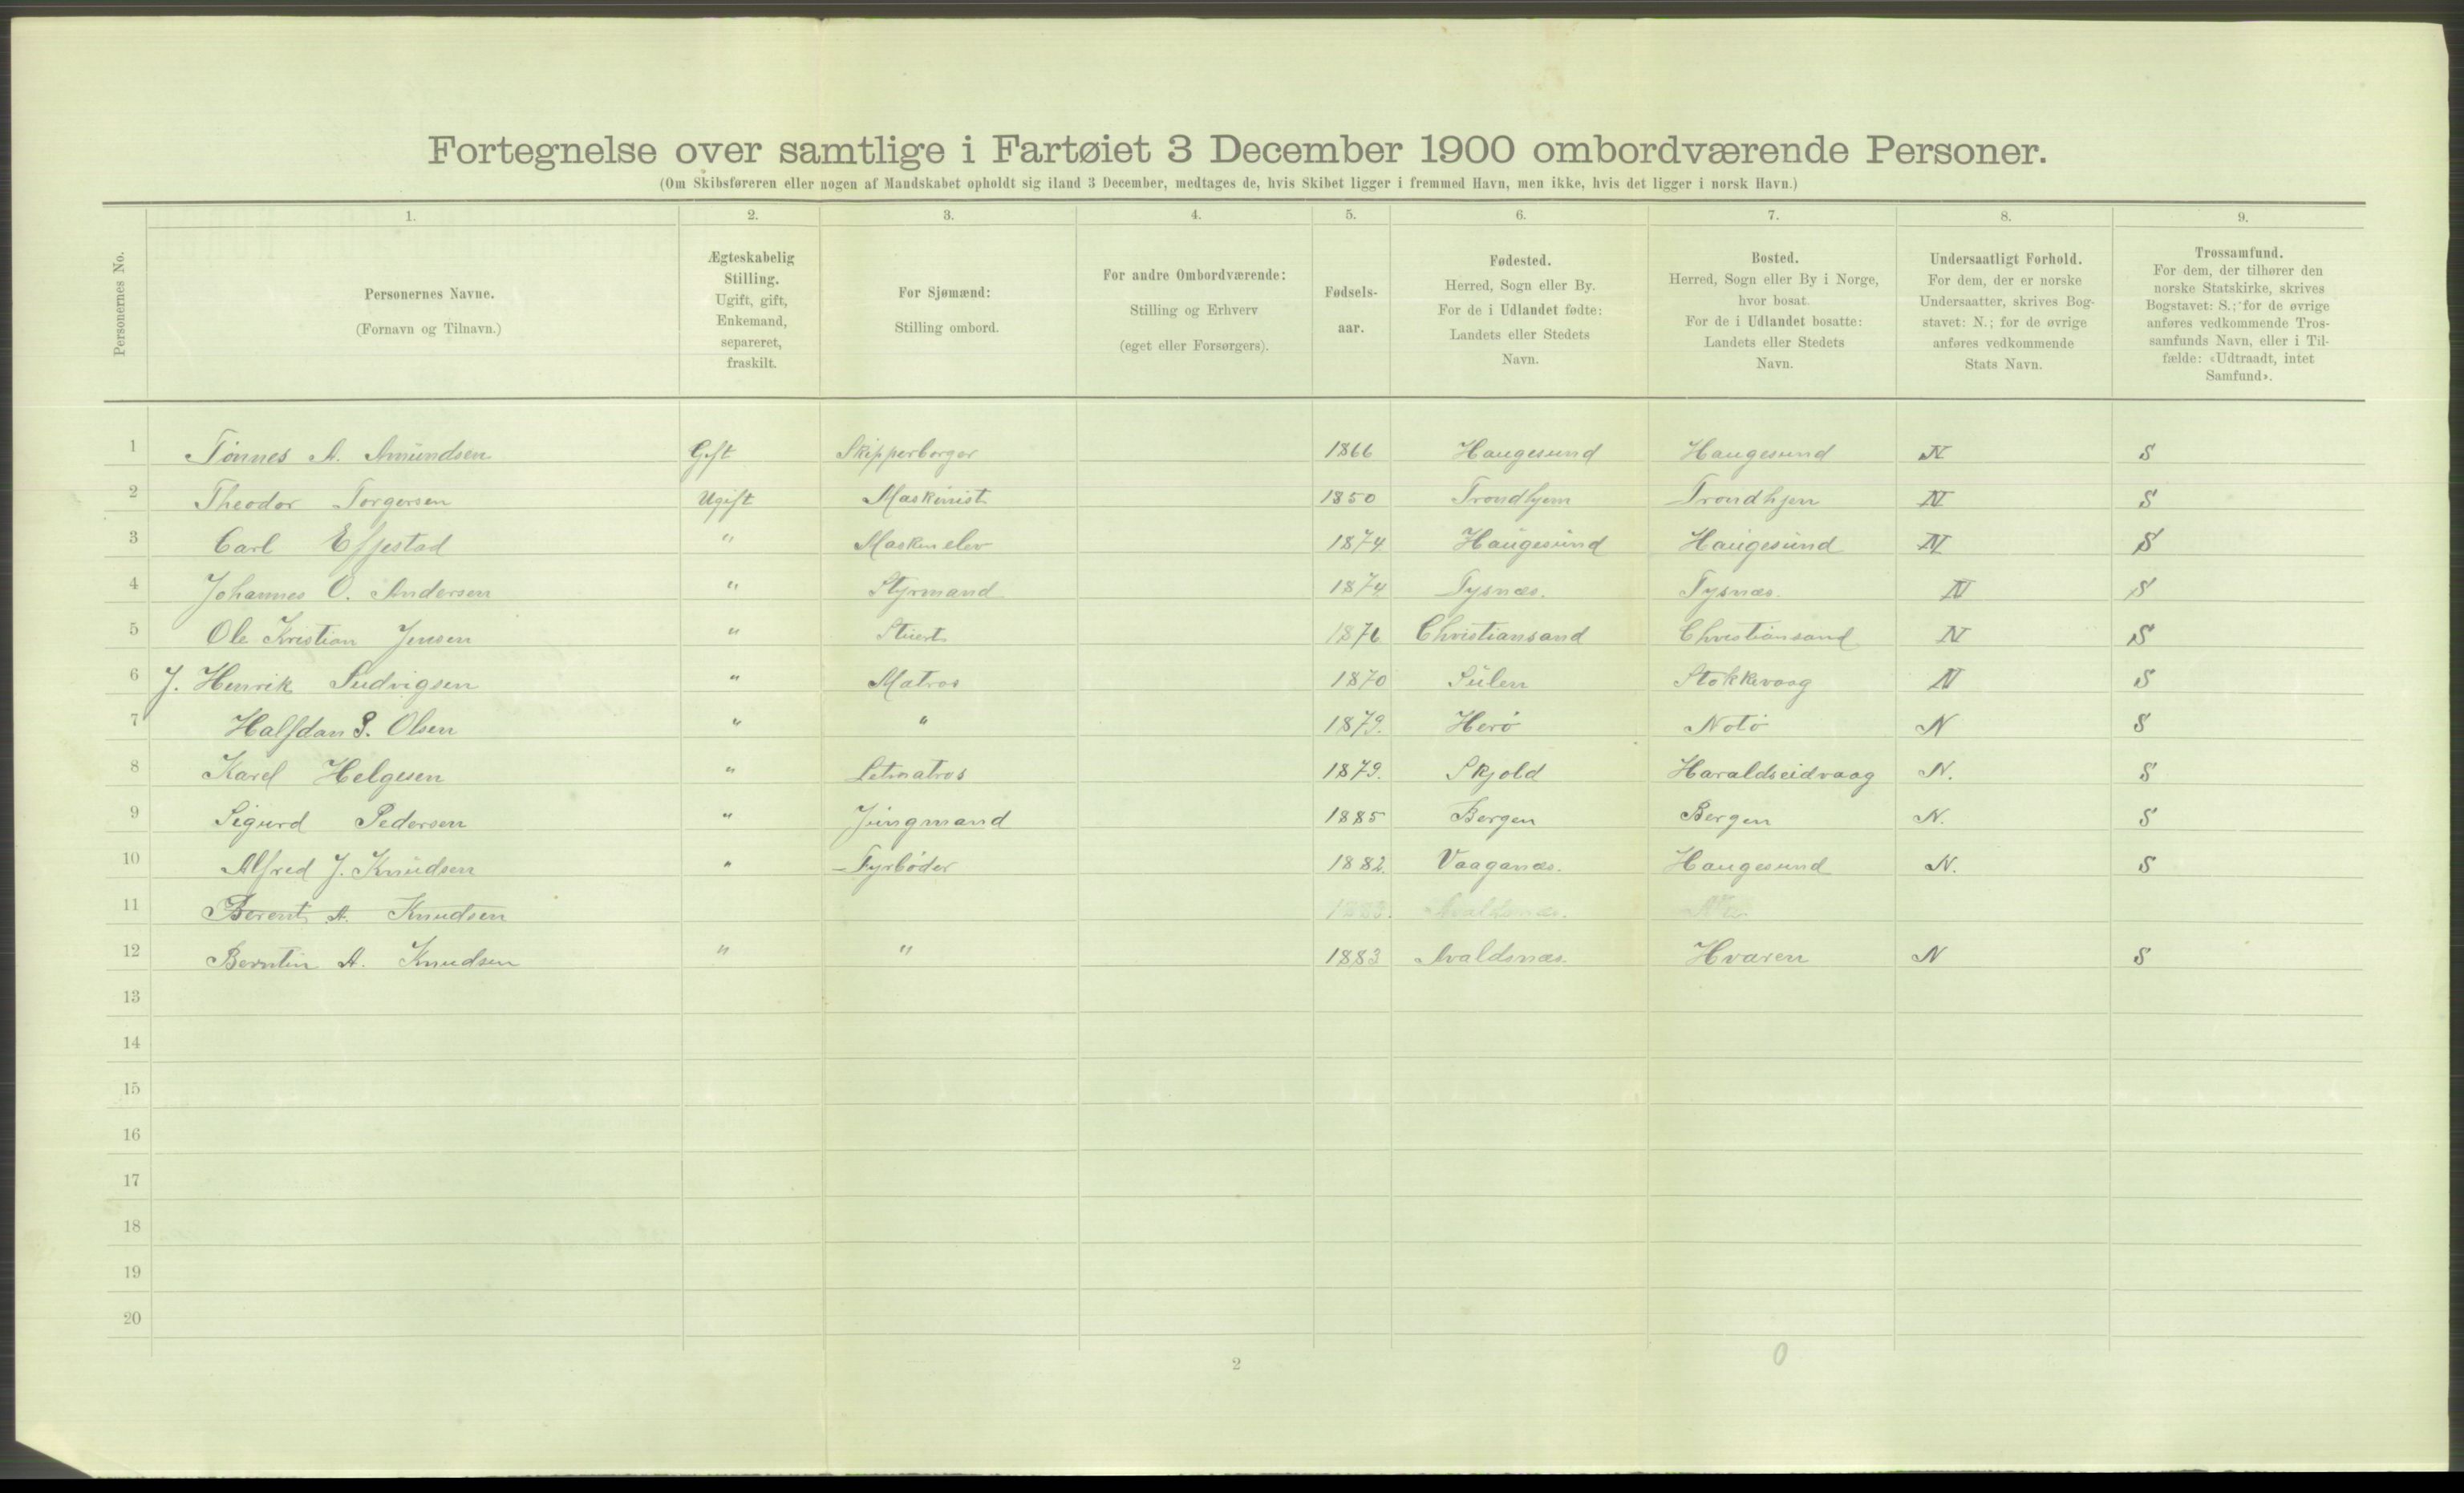 Fortegnelse over samtlige i Fartøiet 3 December 1900 ombordværende Personer.
(Om Skibsføreren eller nogen af Mandskabet opholdt sig iland 3 December, medtages de, hvis Skibet ligger i fremmed Havn, men ikke, hvis det ligger i norsk Havn.)
Personernes No.
1.
Personernes Navne.
(Fornavn og Tilnavn.)
2.
Ægteskabelig
Stilling.
Ugift, gift,
Enkemand,
separeret,
fraskilt.
3.
For Sjømænd:
Stilling ombord.
4.
For andre Ombordværende:
Stilling og Erhverv
(eget eller Forsørgers).
5.
Fødsels-
aar.
6.
Fødested.
Herred, Sogn eller By.
For de i Udlandet fødte:
Landets eller Stedets
Navn.
7.
Bosted.
Herred, Sogn eller By i Norge,
hvor bosat.
For de i Udlandet bosatte:
Landets eller Stedets
Navn.
8.
Undersaatligt Forhold.
For dem, der er norske
Undersaatter, skrives Bog-
stavet: N.; for de øvrige
anføres vedkommende
Stats Navn.
9.
Trossamfund.
For dem, der tilhører den
norske Statskirke, skrives
Bogstavet: S.; for de øvrige
anføres vedkommende Tros-
samfunds Navn, eller i Til-
fælde: «Udtraadt, intet
Samfund».
1 Tönnes A. Amundsen Gift Skipperborger 1866 Haugesund Haugesund N S
2 Theodor Torgersen Ugift Maskinist 1850 Trondhjem Trondhjen N S
3 Carl Effestad " Maskinelev 1874 Haugesund Haugesund N S
4 Johannes O. Andersen " Styrmand 1874 Tysnæs. Tysnæs. N S
5 Ole Kristian Jensen " Stuert 1876 Christiansand Christiansand N S
6 J. Henrik Ludvigsen " Matros 1870 Sulen Stokkevaag N S
7 Halfdan S. Olsen " " 1879. Herö Notö N S
8 Karel Helgesen " Letmatros 1879. Skjold Haraldseidvaag N. S
9 Sigurd Pedersen " Jungmand 1885 Bergen Bergen N. S
10 Alfred J. Knudsen " Fyrböder 1882. Vaaganæs. Haugesund N. S
11 Berent A. Knudsen 1883. Avaldsnæs.
12 Berntin A. Knudsen " " 1883 Avaldsnæs. Hvaren N S
13
14
15
16
17
18
19
20
2
0